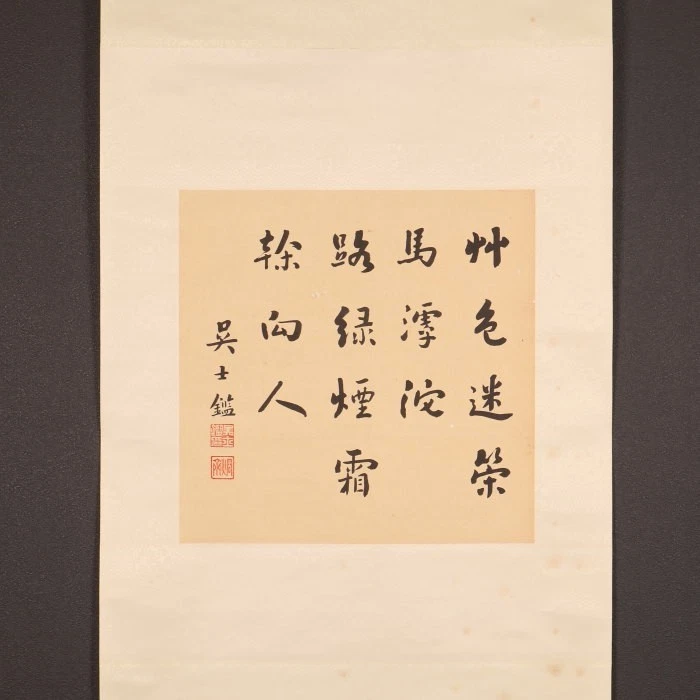 艸色迷策
馬滹沱
路綠煙霜
榦向人
吳士鑑